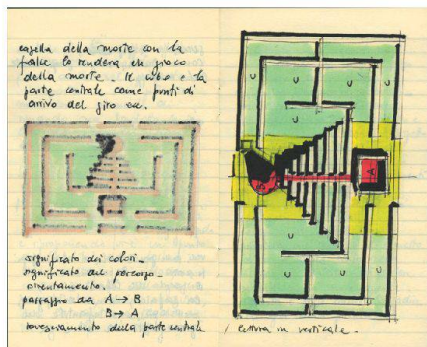 casella della morte con la
falce lo renderà un gioco
della morte. Il cubo e la
parte centrale come punti di
arrivo del giro
significato dei colori_
significato del percorso_
orientamento_
passaggio da A → B
B → A
rovesciamento della parte centrale
U
U
U
U
U
U
U
U
B
A
/ lettura in verticale.